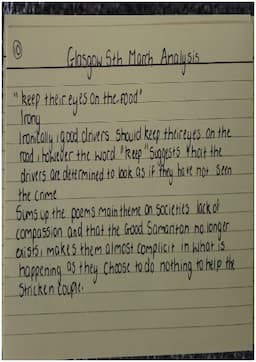 Glasgow 5th March Analysis
"keep their eyes on the road"
Irony
Ironically, good drivers should keep their eyes on the
road, however the word "keep" suggests that the
drivers are determined to look as if they have not seen
the crime
Sums up the poems main theme on societies lack of
compassion and that the Good Samaritan no longer
exists, makes them almost complicit in what is
happening as they choose to do nothing to help the
stricken couple.